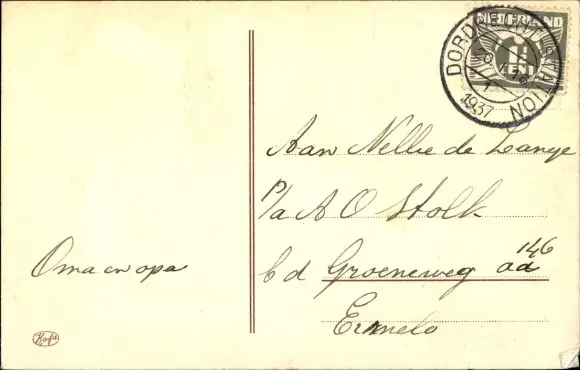 NEDERLAND
1½
CENT
DORDRECHT STATION
1937
Aan Nellie de Lange
p/a A O Stolk
Oma en opa
b d Groeneweg aa 146
Ermelo
Kofa